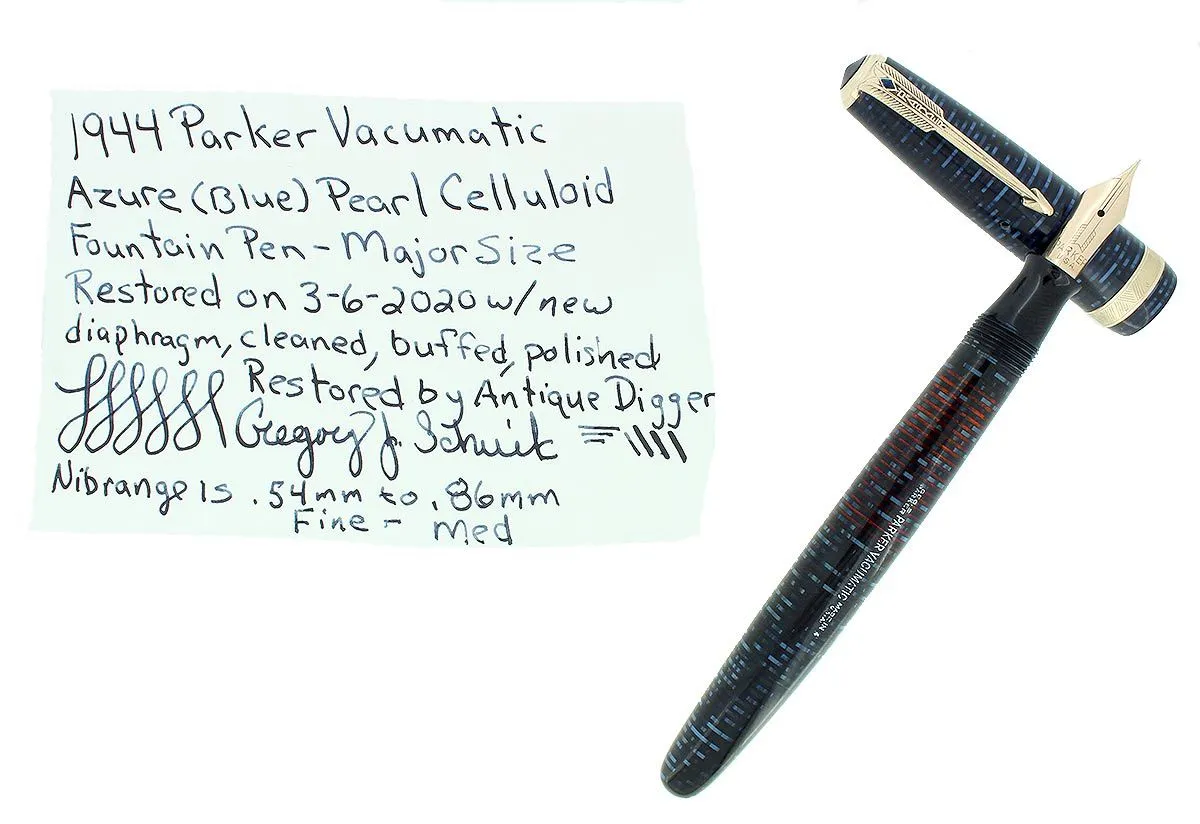 1944 Parker Vacumatic
Azure (Blue) Pearl Celluloid
Fountain Pen - Major Size
Restored on 3-6-2020 w/new
diaphragm, cleaned, buffed, polished
Restored by Antique Digger
Gregory J.
Nib range is .54mm to .86mm
Fine - Med
PARKER
USA
PARKER VACUMATIC MADE IN
U.S.A. 4